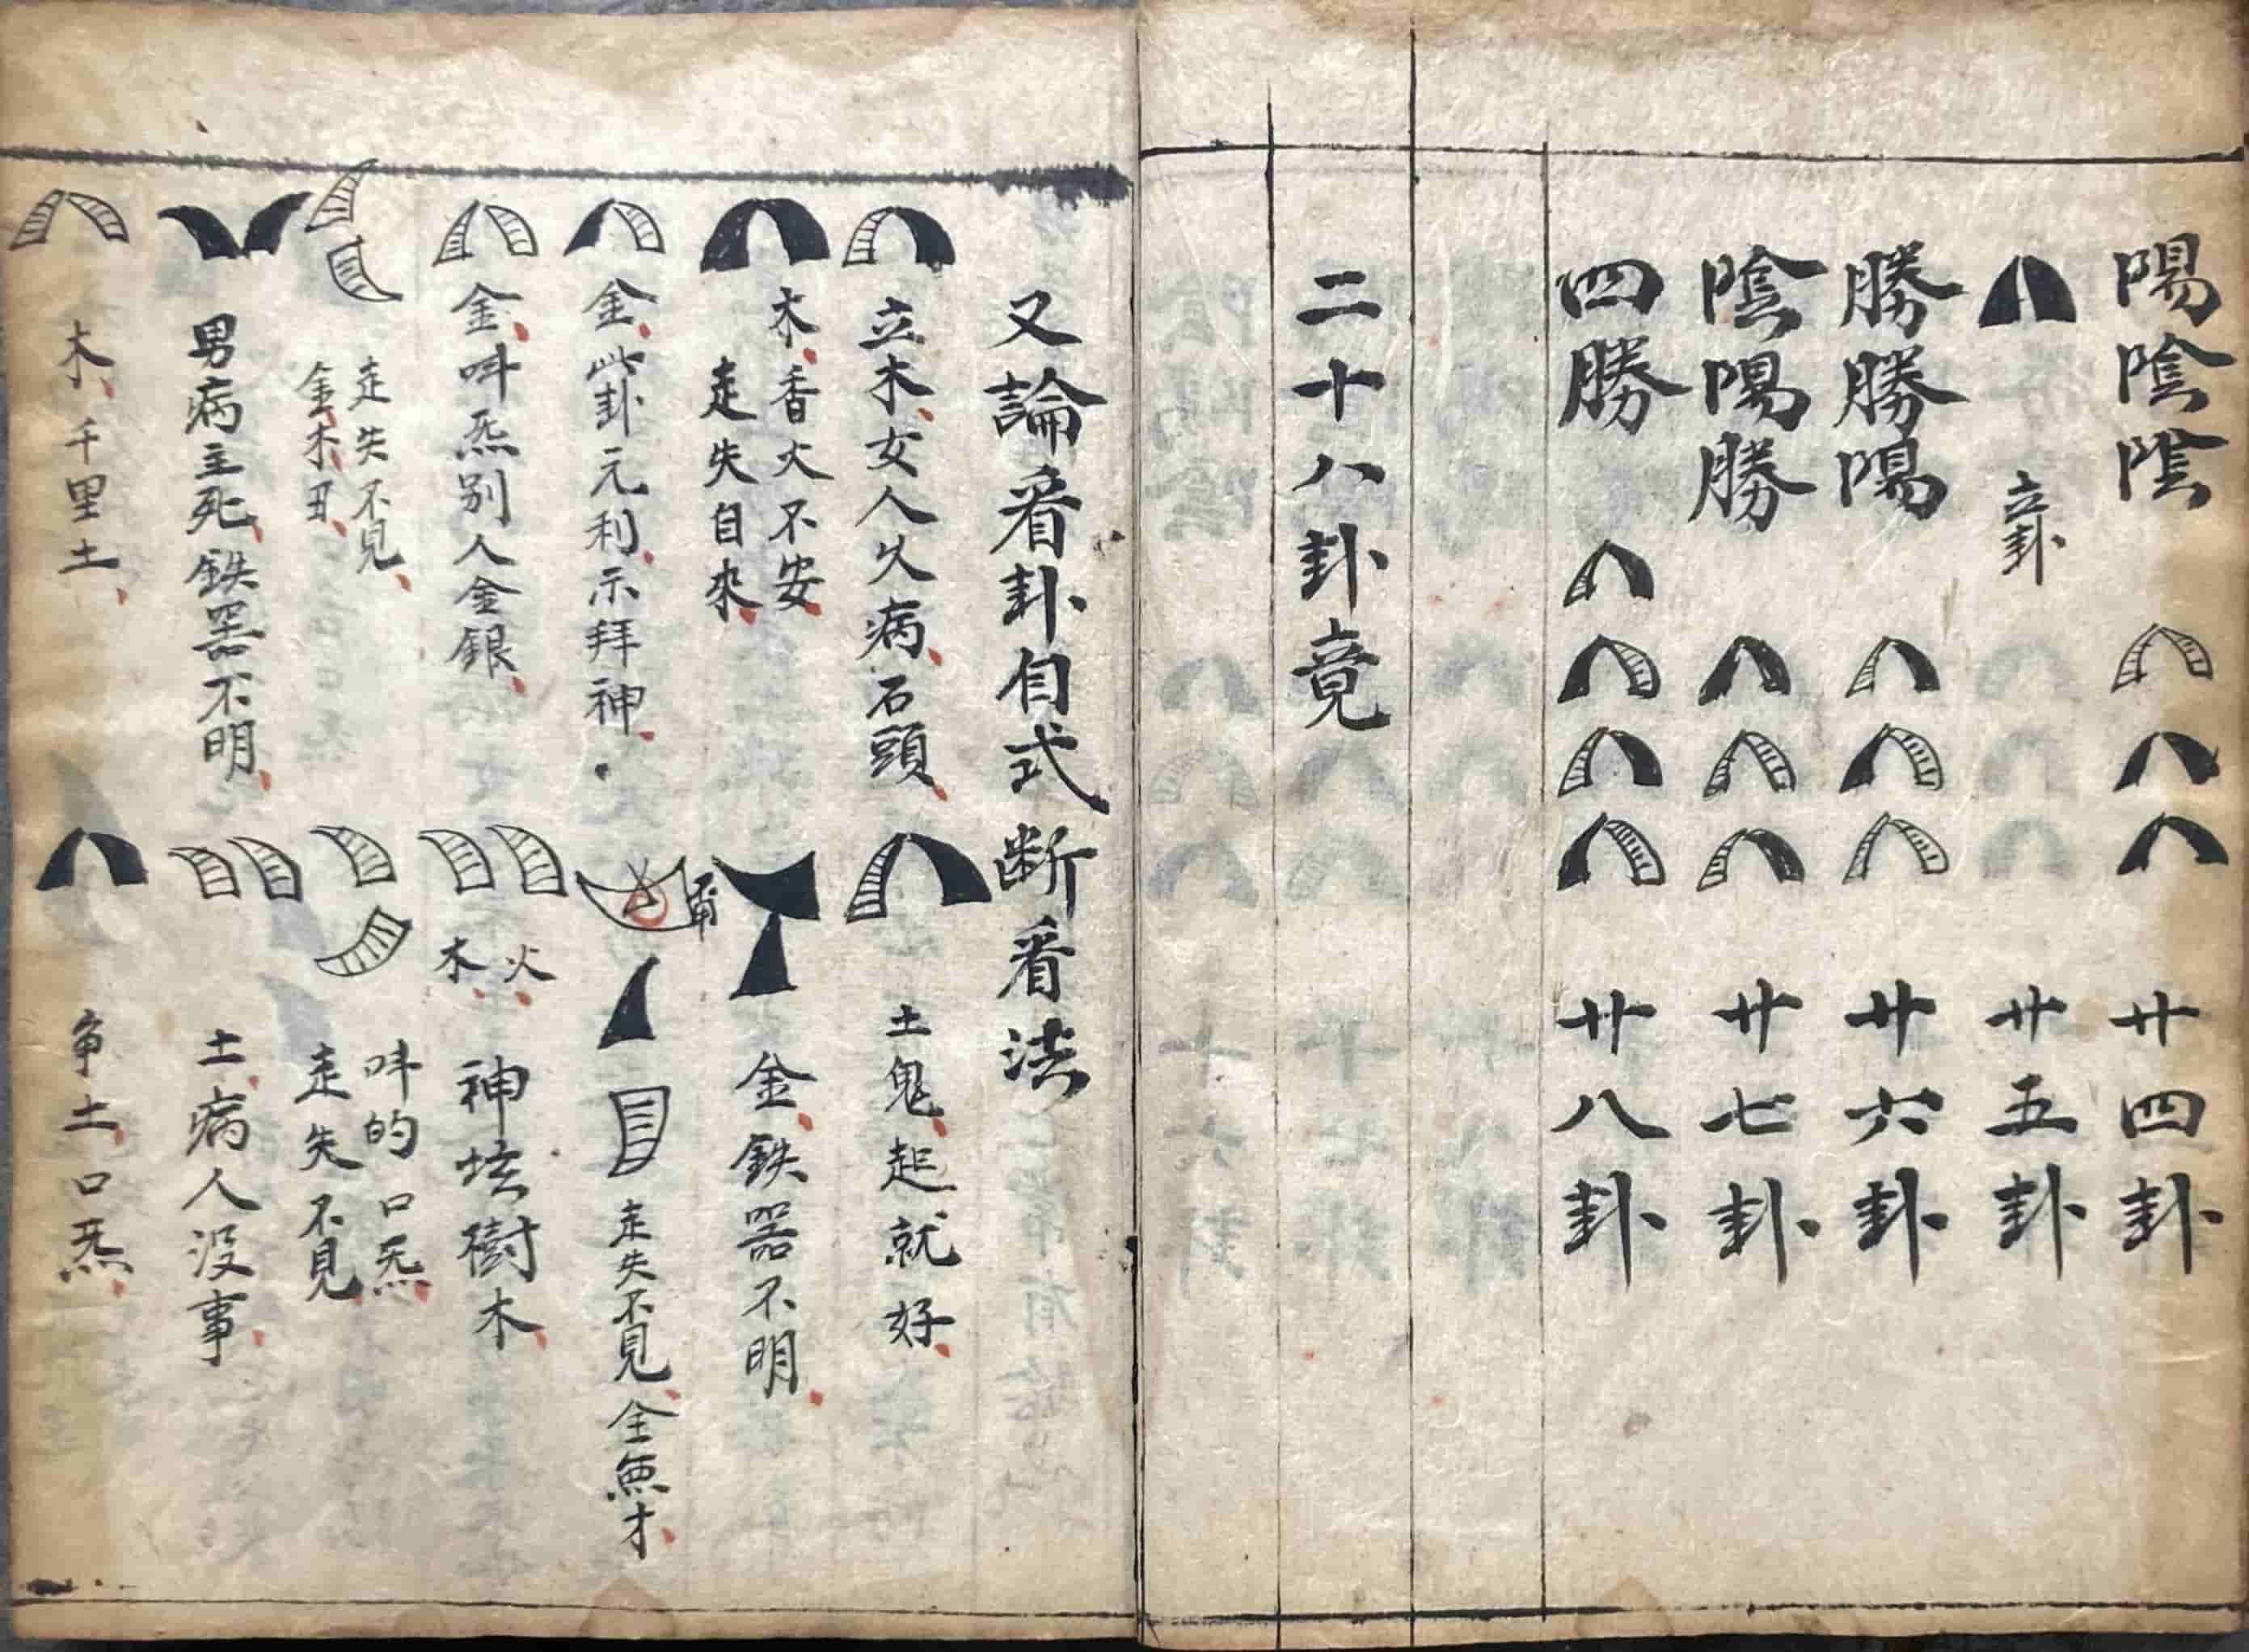 陽陰陰 廿四卦
立卦 廿五卦
勝勝陽 廿六卦
陰陽勝 廿七卦
四勝 廿八卦
二十八卦竟
又論看卦自式断看法
立木女人火病石頭
土鬼起就好
木香火不安
走失自來
金鉄器不明
金此卦元利示拜神
走失不見全無才
金呌炁别人金銀
火
木
神坛樹木
走失不見
金木丑
呌的口炁
走失不見
男病主死鉄器不明
土病人没事
木千里土
争土口炁